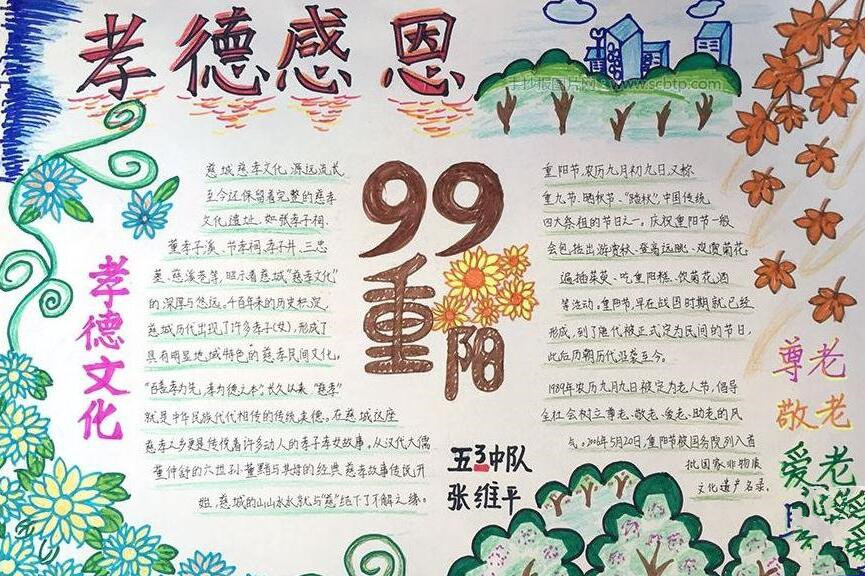 孝德感恩
手抄报图片网 www.scbtp.com
慈城慈孝文化,源远流长
至今还保留着完整的慈孝
文化遗址,如张孝子祠、
董孝子溪、节孝祠、孝子井、三忠
墓、慈溪巷等,昭示着慈城"慈孝文化"
的深厚与悠远。千百年来的历史积淀,
慈城历代出现了许多孝子(女),形成了
具有明显地域特色的慈孝民间文化。
"百善孝为先,孝为德之本",长久以来"慈孝"
就是中华民族代代相传的传统美德。在慈城这座
慈孝之乡更是传传着许多动人的孝子孝女故事。从汉代大儒
董仲舒的六世孙董黯与其母的经典慈孝故事传说开
始,慈城的山山水水就与"慈"结下了不解之缘。
孝德文化
99
重阳
五3中队
张维平
重阳节,农历九月初九日,又称
重九节、晒秋节、"踏秋",中国传统
四大祭祖的节日之一。庆祝重阳节一般
会包括出游赏秋、登高远眺、观赏菊花、
遍插茱萸、吃重阳糕、饮菊花酒
等活动。重阳节,早在战国时期就已经
形成,到了唐代被正式定为民间的节日,
此后历朝历代沿袭至今。
1989年农历九月九日被定为老人节,倡导
全社会树立尊老、敬老、爱老、助老的风
气。2006年5月20日,重阳节被国务院列入首
批国家非物质
文化遗产名录。
尊老
敬老
爱老